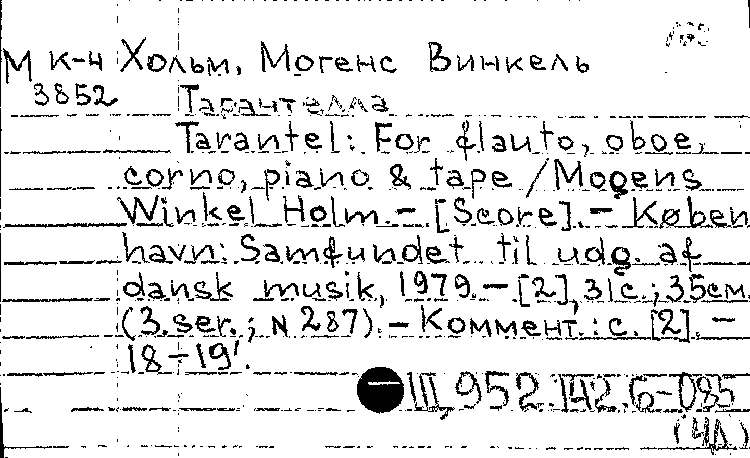 М К-4 Хольм, Могенс Винкель
3852 Тарантелла
Tarantel: For flauto, oboe,
corno, piano & tape / Mogens
Winkel Holm. - [Score]. - Køben
havn: Samfundet til udg. af
dansk musik, 1979. - [2], 31 с.; 35 см.
(3. ser.; N 287). - Коммент.: с. [2]. -
18-19'.
III, 952.142.6-085
(ЧЛ)